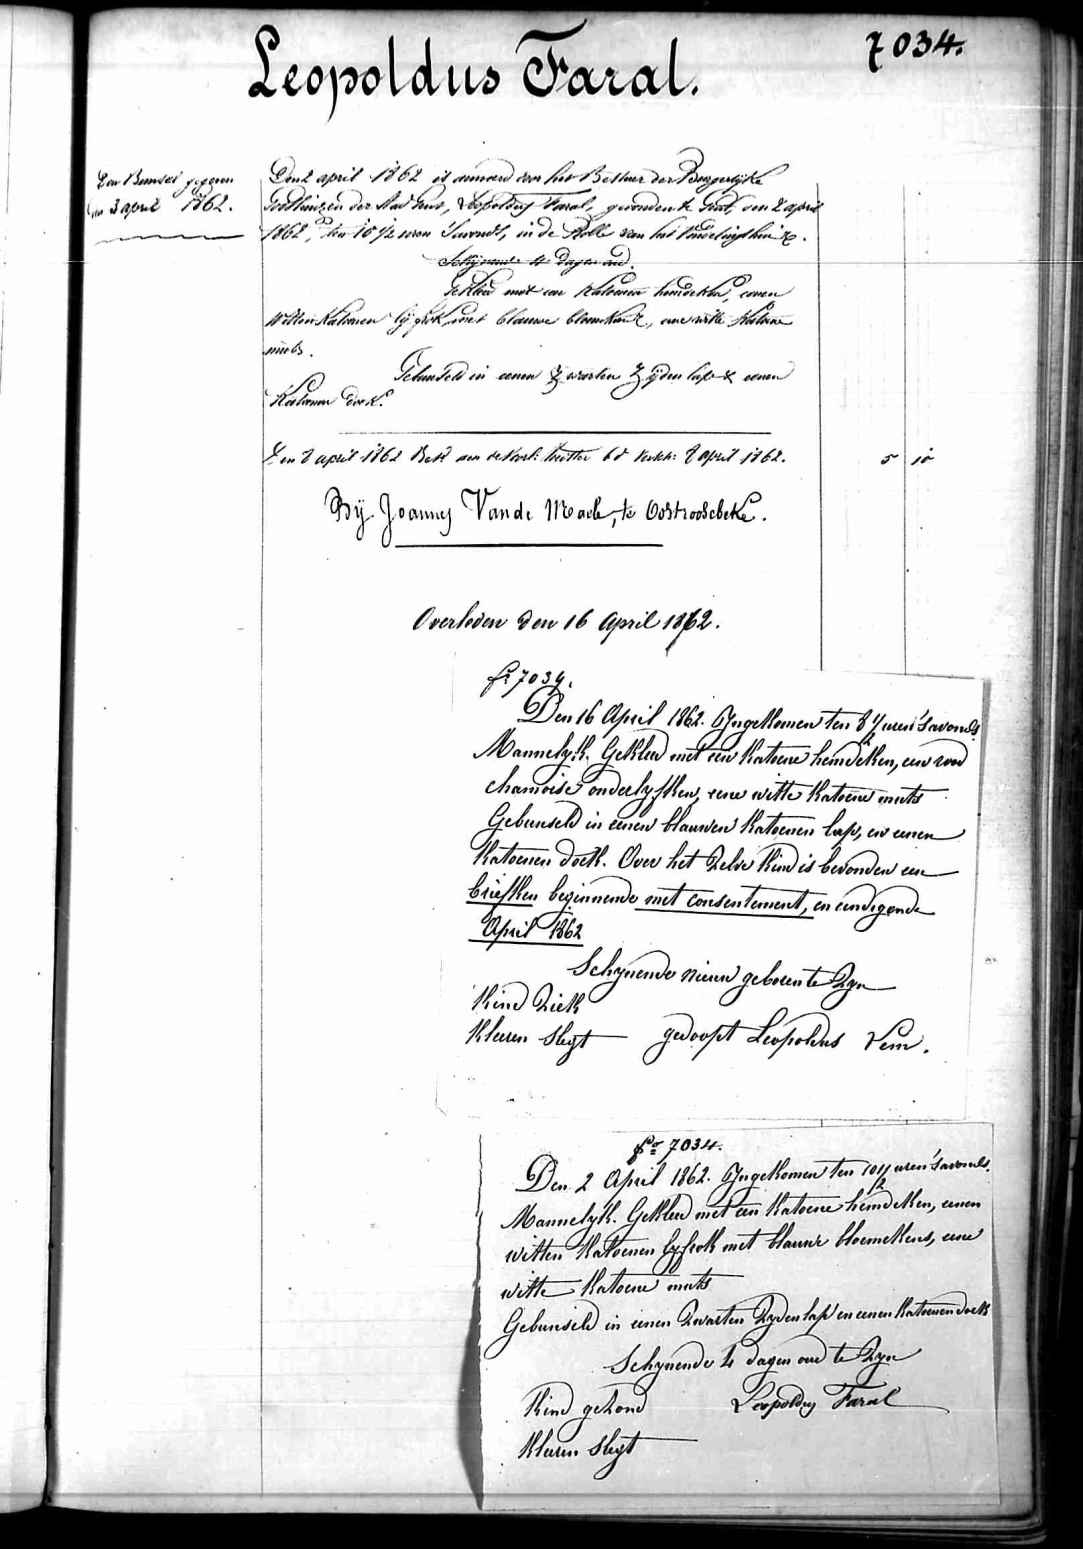 7034.
Leopoldus Faral.
3 april 1862.
Den 2 april 1862 is aanveerd van het Bestuer der Burgerlijke
Godshuizen der Stad Gent, Leopoldus Faral, gevonden te Gent, den 2 april
1862, ten 10 1/2 uren 'savonds, in de Rolle van het Vondelinghuis.
Schijnende 4 dagen oud.
Gekleed met een Katoenen hemdeken, eenen
Witten Katoenen lijfrok met blauwe bloemkens, eene witte Katoene
muts.
Gebunseld in eenen zwarten Zijden lap & eenen
Katoenen doek.
april 1862 april 1862. 5 10
Bij Joannes Vande Maele, te Oostroosebeke.
Overleden den 16 April 1862.
fº 7034.
Den 16 April 1862. Ingekomen ten 8 1/2 uren 'savonds
Mannelyk. Gekleed met een Katoene hemdeken, een rood
chamoise onderlyfken, eene witte Katoene muts
Gebunseld in eenen blauwen Katoenen lap, en eenen
Katoenen doek. Over het Zelve Kind is bevonden een
briefken beginnende met consentement, en eindigende
April 1862
Schynende nieuw geboren te Zyn
Kind Ziek
Kleeren Slegt gedoopt Leopoldus
fº 7034.
Den 2 April 1862. Ingekomen ten 10 1/2 uren 'savonds.
Mannelyk. Gekleed met een Katoene hemdeken, eenen
witten Katoenen lyfrok met blauwe bloemekens, eene
witte Katoene muts
Gebunseld in eenen Zwarten Zyden lap en eenen Katoenen doek
Schynende 4 dagen oud te Zyn
Kind gezond Leopoldus Faral
Kleeren Slegt